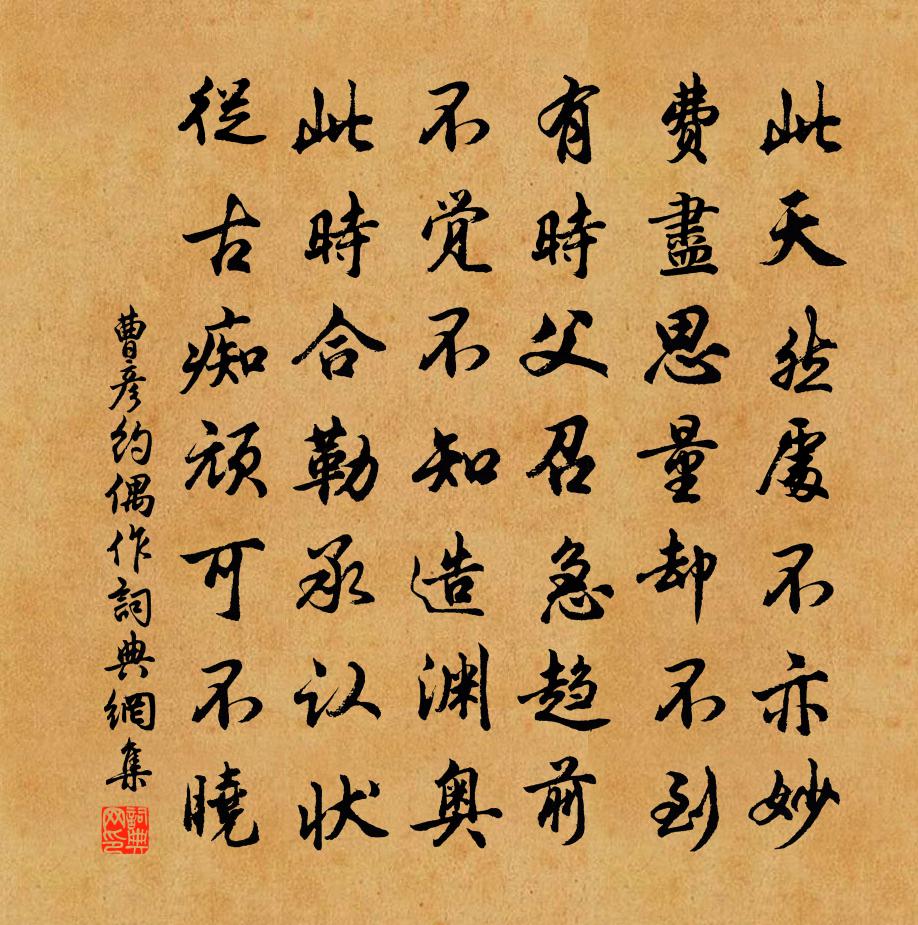 此天然處不亦妙
費盡思量却不到
有時父召急趨前
不觉不知造渊奥
此時合勒承认状
從古痴頑可不曉
曹彦約偶作詞典網集
詞典網印